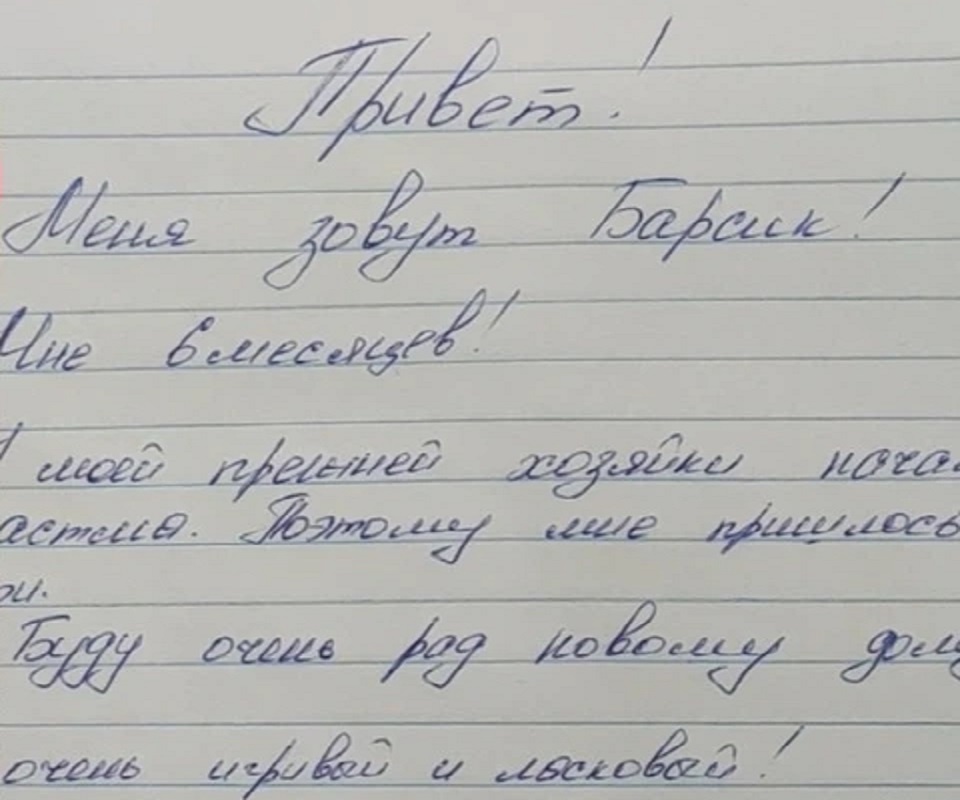 Привет!
Меня зовут Барсик!
Мне 6 месяцев!
моей прежней хозяйки нача
астма. Поэтому мне пришлось
ои.
Буду очень рад новому дому
очень игривый и ласковый!